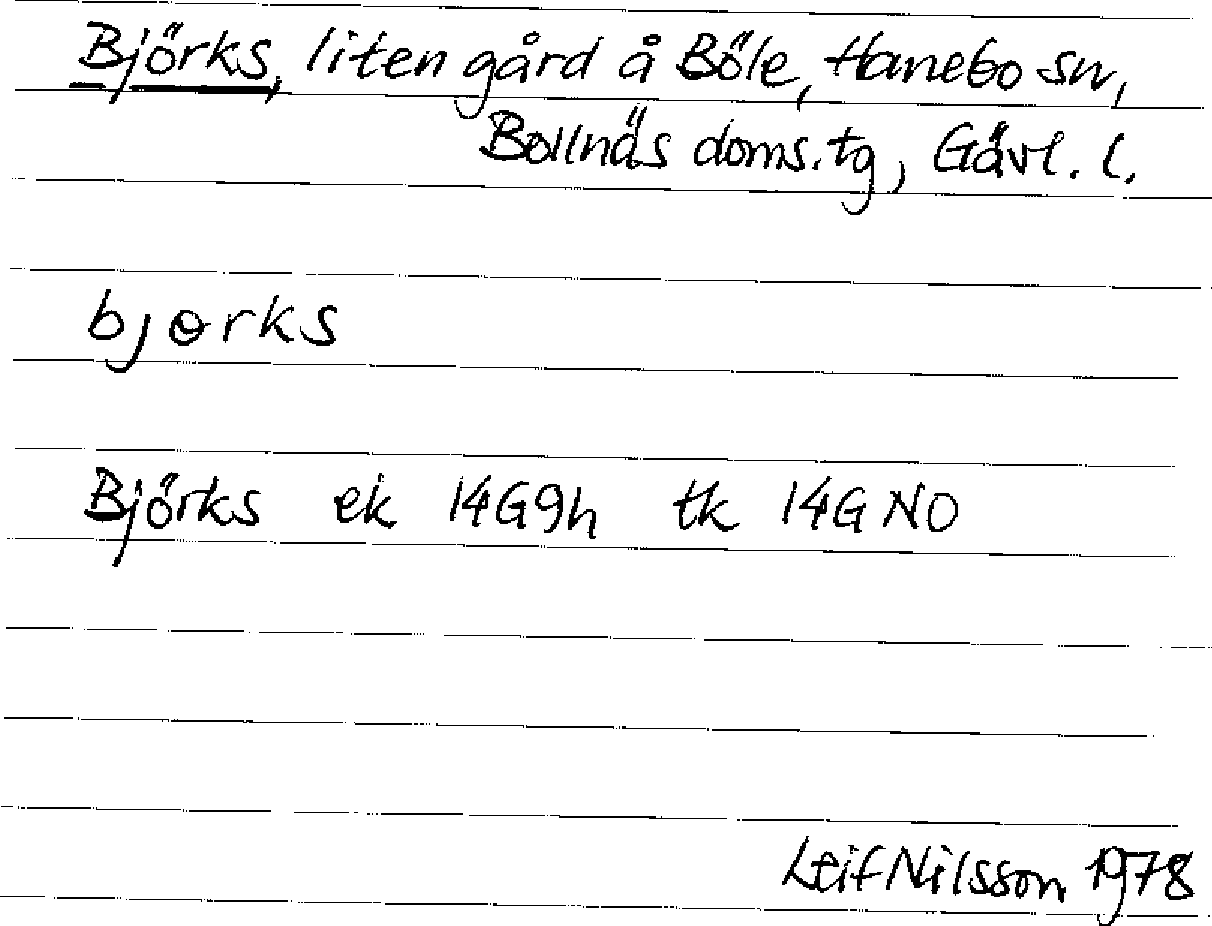 Björks, liten gård å Böle, Hanebo sn,
Bollnäs doms.tg, Gävl. l.
bjɵrks
Björks ek 14G9h tk 14G NO
Leif Nilsson 1978